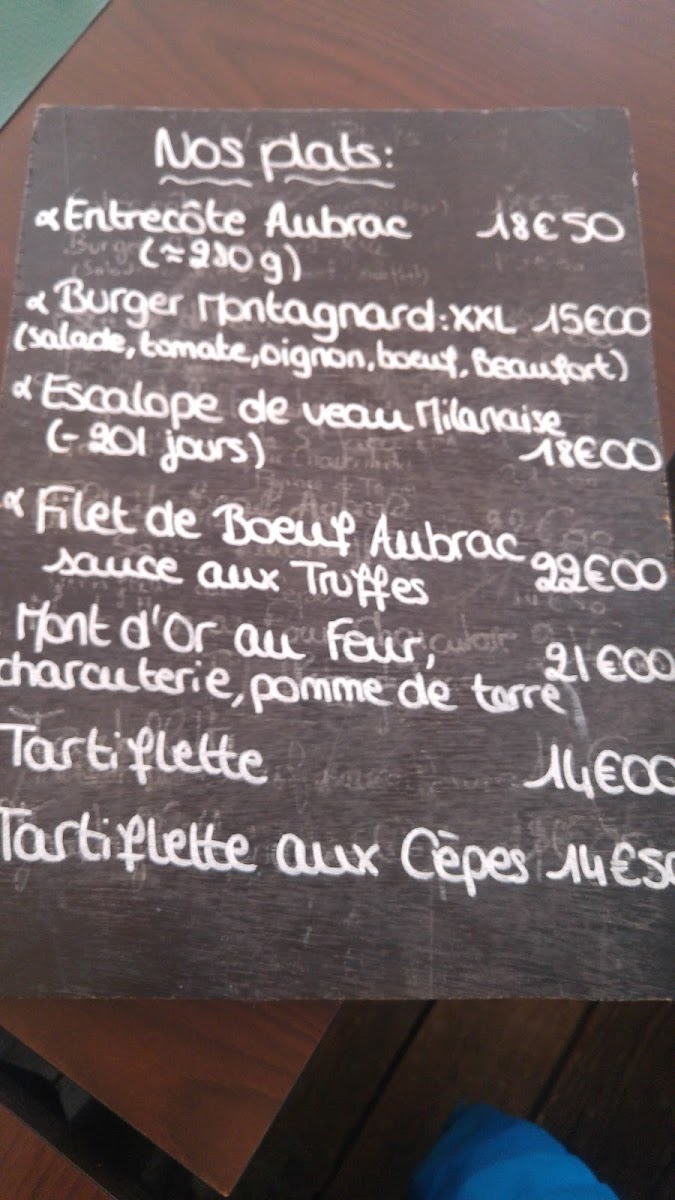 Nos plats:
∝ Entrecôte Aubrac 18€50
(≈230g)
∝ Burger Montagnard: XXL 15€00
(salade, tomate, oignon, boeuf, Beaufort)
∝ Escalope de veau Milanaise
(- 201 jours) 18€00
∝ Filet de Boeuf Aubrac
sauce aux Truffes 22€00
Mont d'Or au Four, 21€00
charcuterie, pomme de terre
Tartiflette 14€00
Tartiflette aux Cèpes 14€50